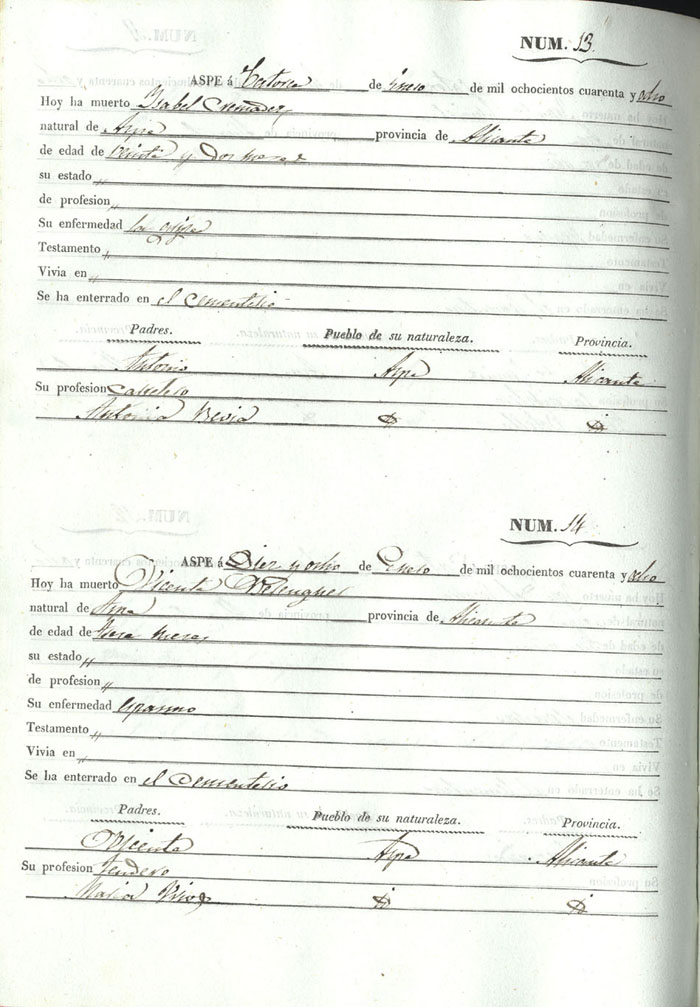 NUM. 13.
ASPE á Catorse de Enero de mil ochocientos cuarenta y ocho
Hoy ha muerto Ysabel Cremades
natural de Aspe provincia de Alicante
de edad de veinte y dos meses
su estado „
de profesion „
Su enfermedad la gripe
Testamento „
Vivia en „
Se ha enterrado en el Cementerio
Padres. Pueblo de su naturaleza. Provincia.
Antonio Aspe Alicante
Su profesion
Antonia Bevia
NUM. 14
ASPE á Diez y ocho de Enero de mil ochocientos cuarenta y ocho
Hoy ha muerto Vicenta Berenguer
natural de Aspe provincia de Alicante
de edad de meses
su estado „
de profesion „
Su enfermedad espasmo
Testamento „
Vivia en „
Se ha enterrado en el Cementerio
Padres. Pueblo de su naturaleza. Provincia.
Vicente Aspe Alicante
Su profesion tendero
Maria